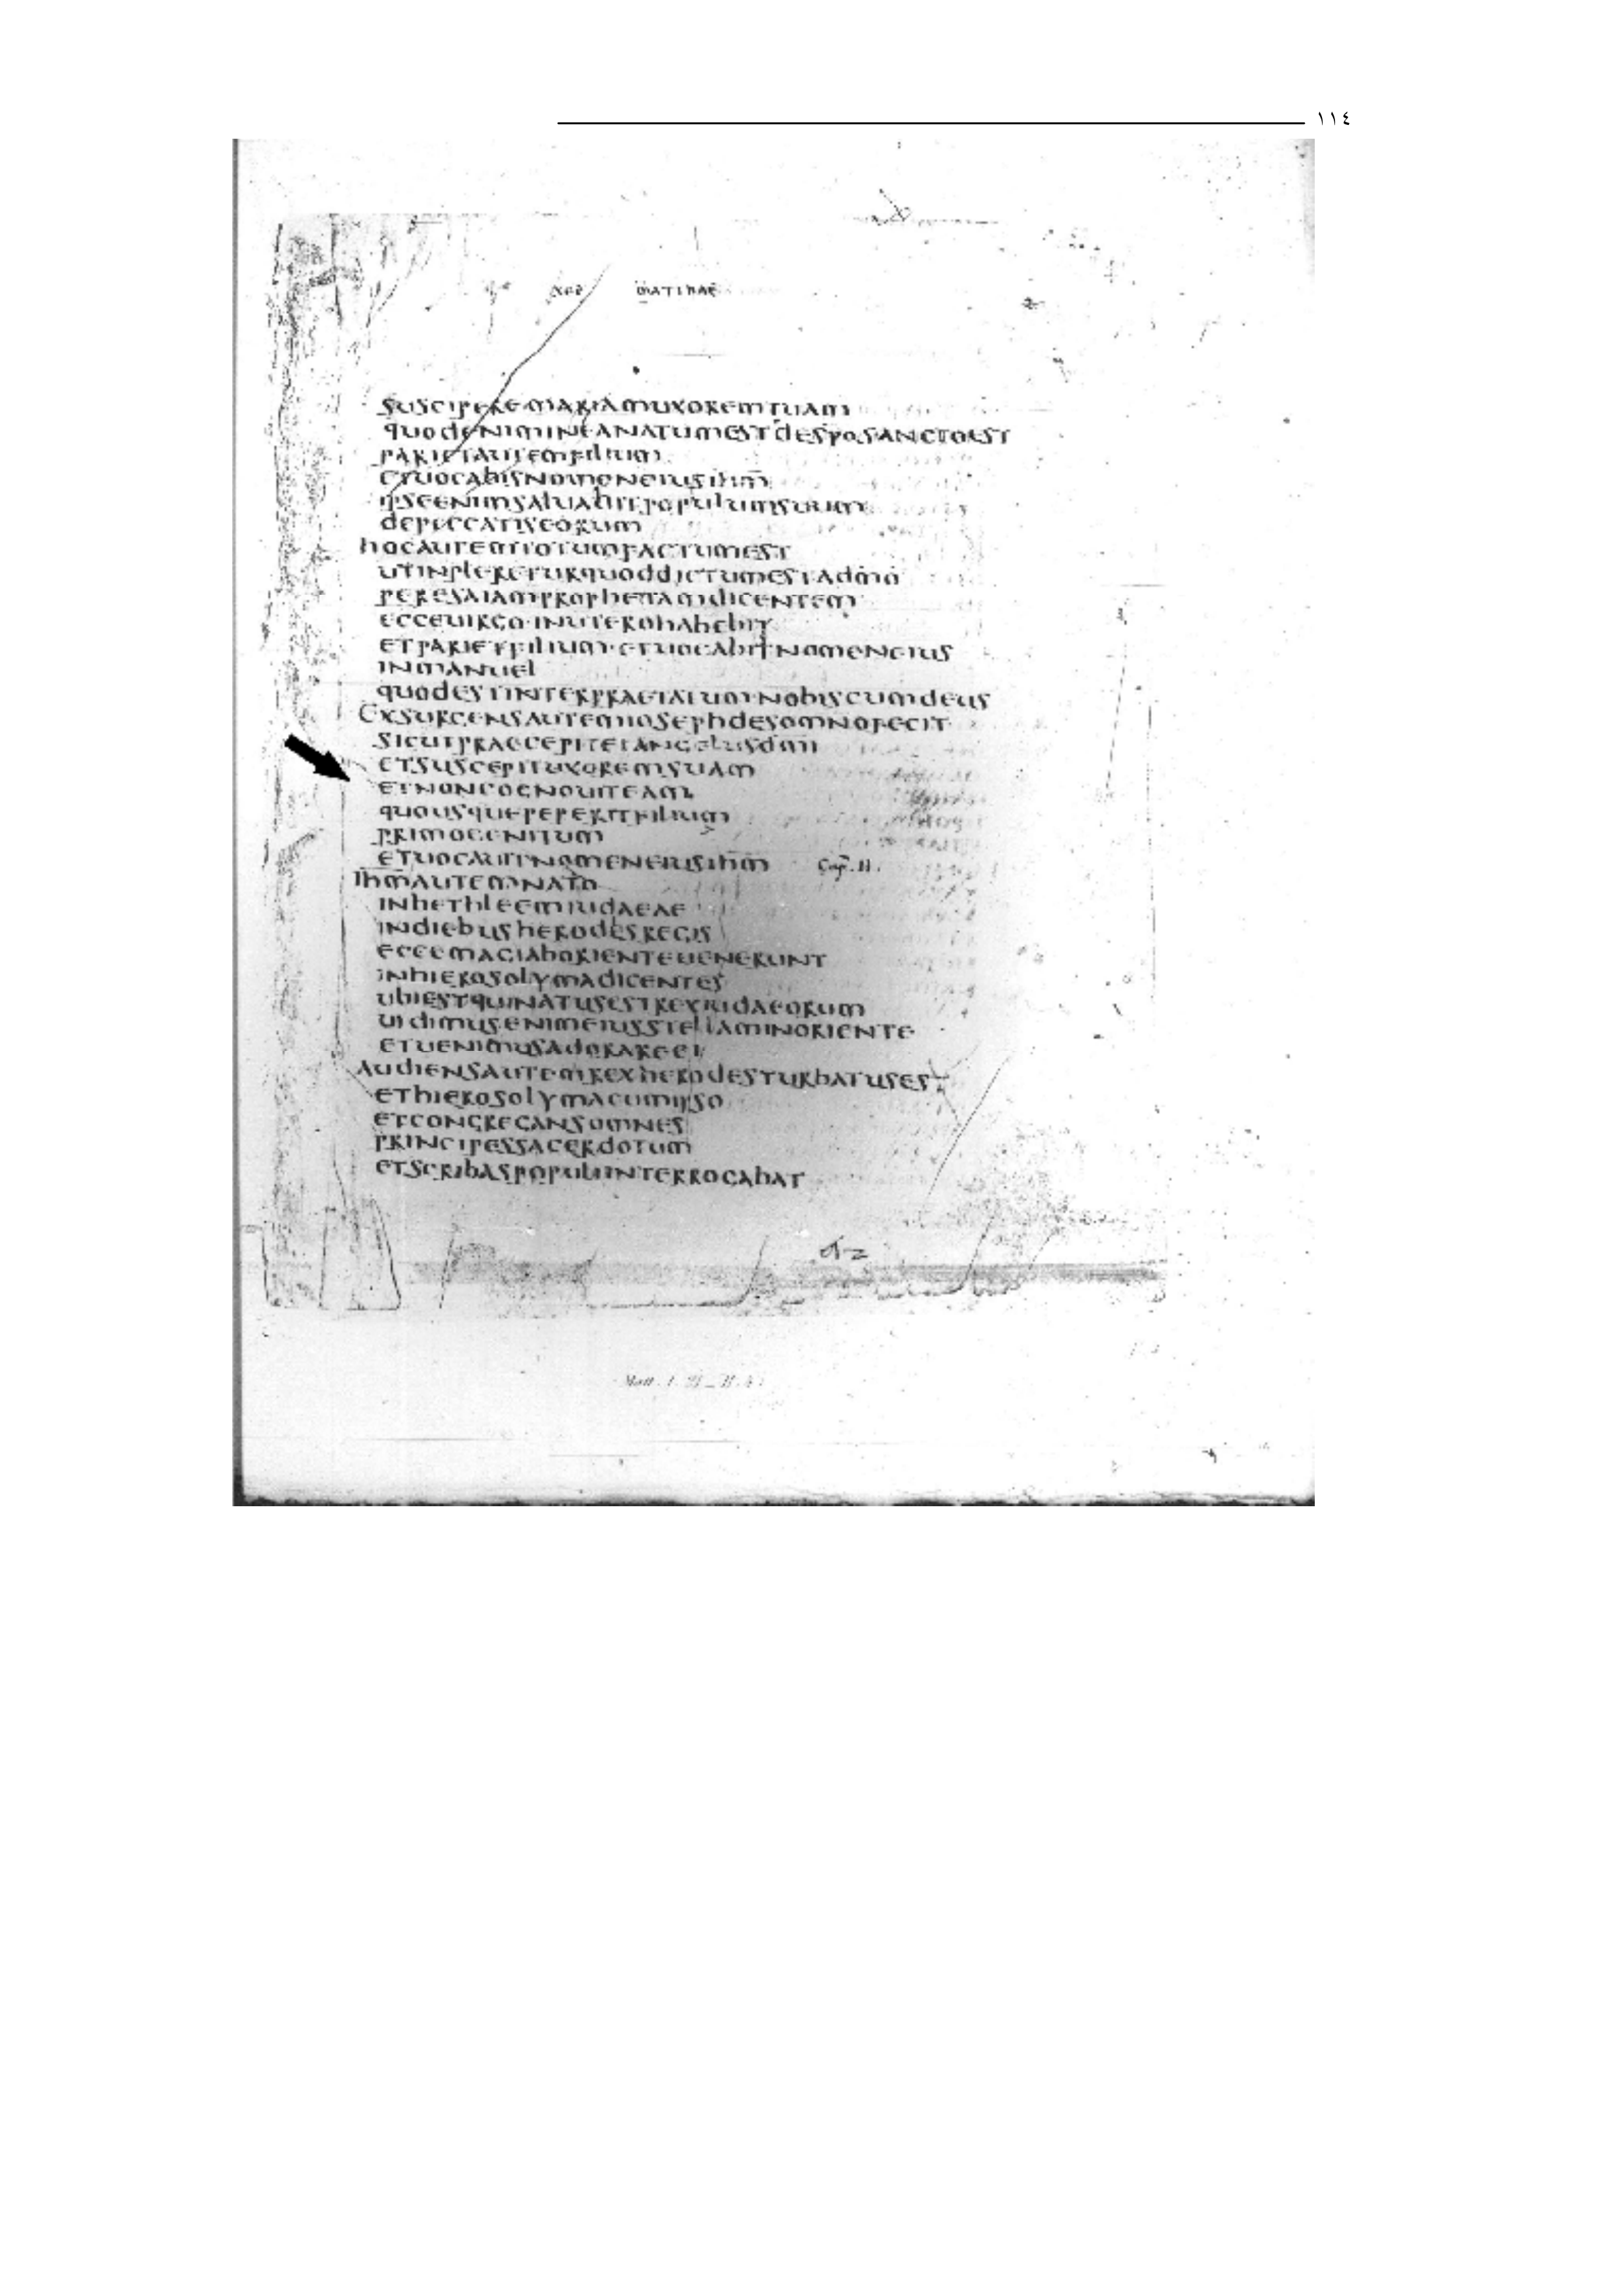 ١١٤
suscipere mariam uxorem tuam
quod enim in ea natum est de spo sancto est
pariet autem filium
et uocabis nomen eius ihm
ipse enim saluabit populum suum
de peccatis eorum
hoc autem totum factum est
ut inpleretur quod dictum est a dno
per esaiam prophetam dicentem
ecce uirgo in utero habebit
et pariet filium · et uocabit nomen eius
inmanuel
quod est interpraetatum nobiscum deus
Exsurgens autem ioseph de somno fecit
sicut praecepit ei angelus dni
et suscepit uxorem suam
et non cognouit eam
quousque peperit filium
primogenitum
et uocauit nomen eius ihm Cap. II.
Ihm autem nato
in bethleem iudaeae
in diebus herodes regis
ecce magi ab oriente uenerunt
in hierosolyma dicentes
ubi est qui natus est rex iudaeorum
uidimus enim eius stellam in oriente
et uenimus adorare ei
Audiens autem rex herodes turbatus est
et hierosolyma cum ipso
et congregans omnes
principes sacerdotum
et scribas populi interrogabat
Matt. I. 21 _ II. 4